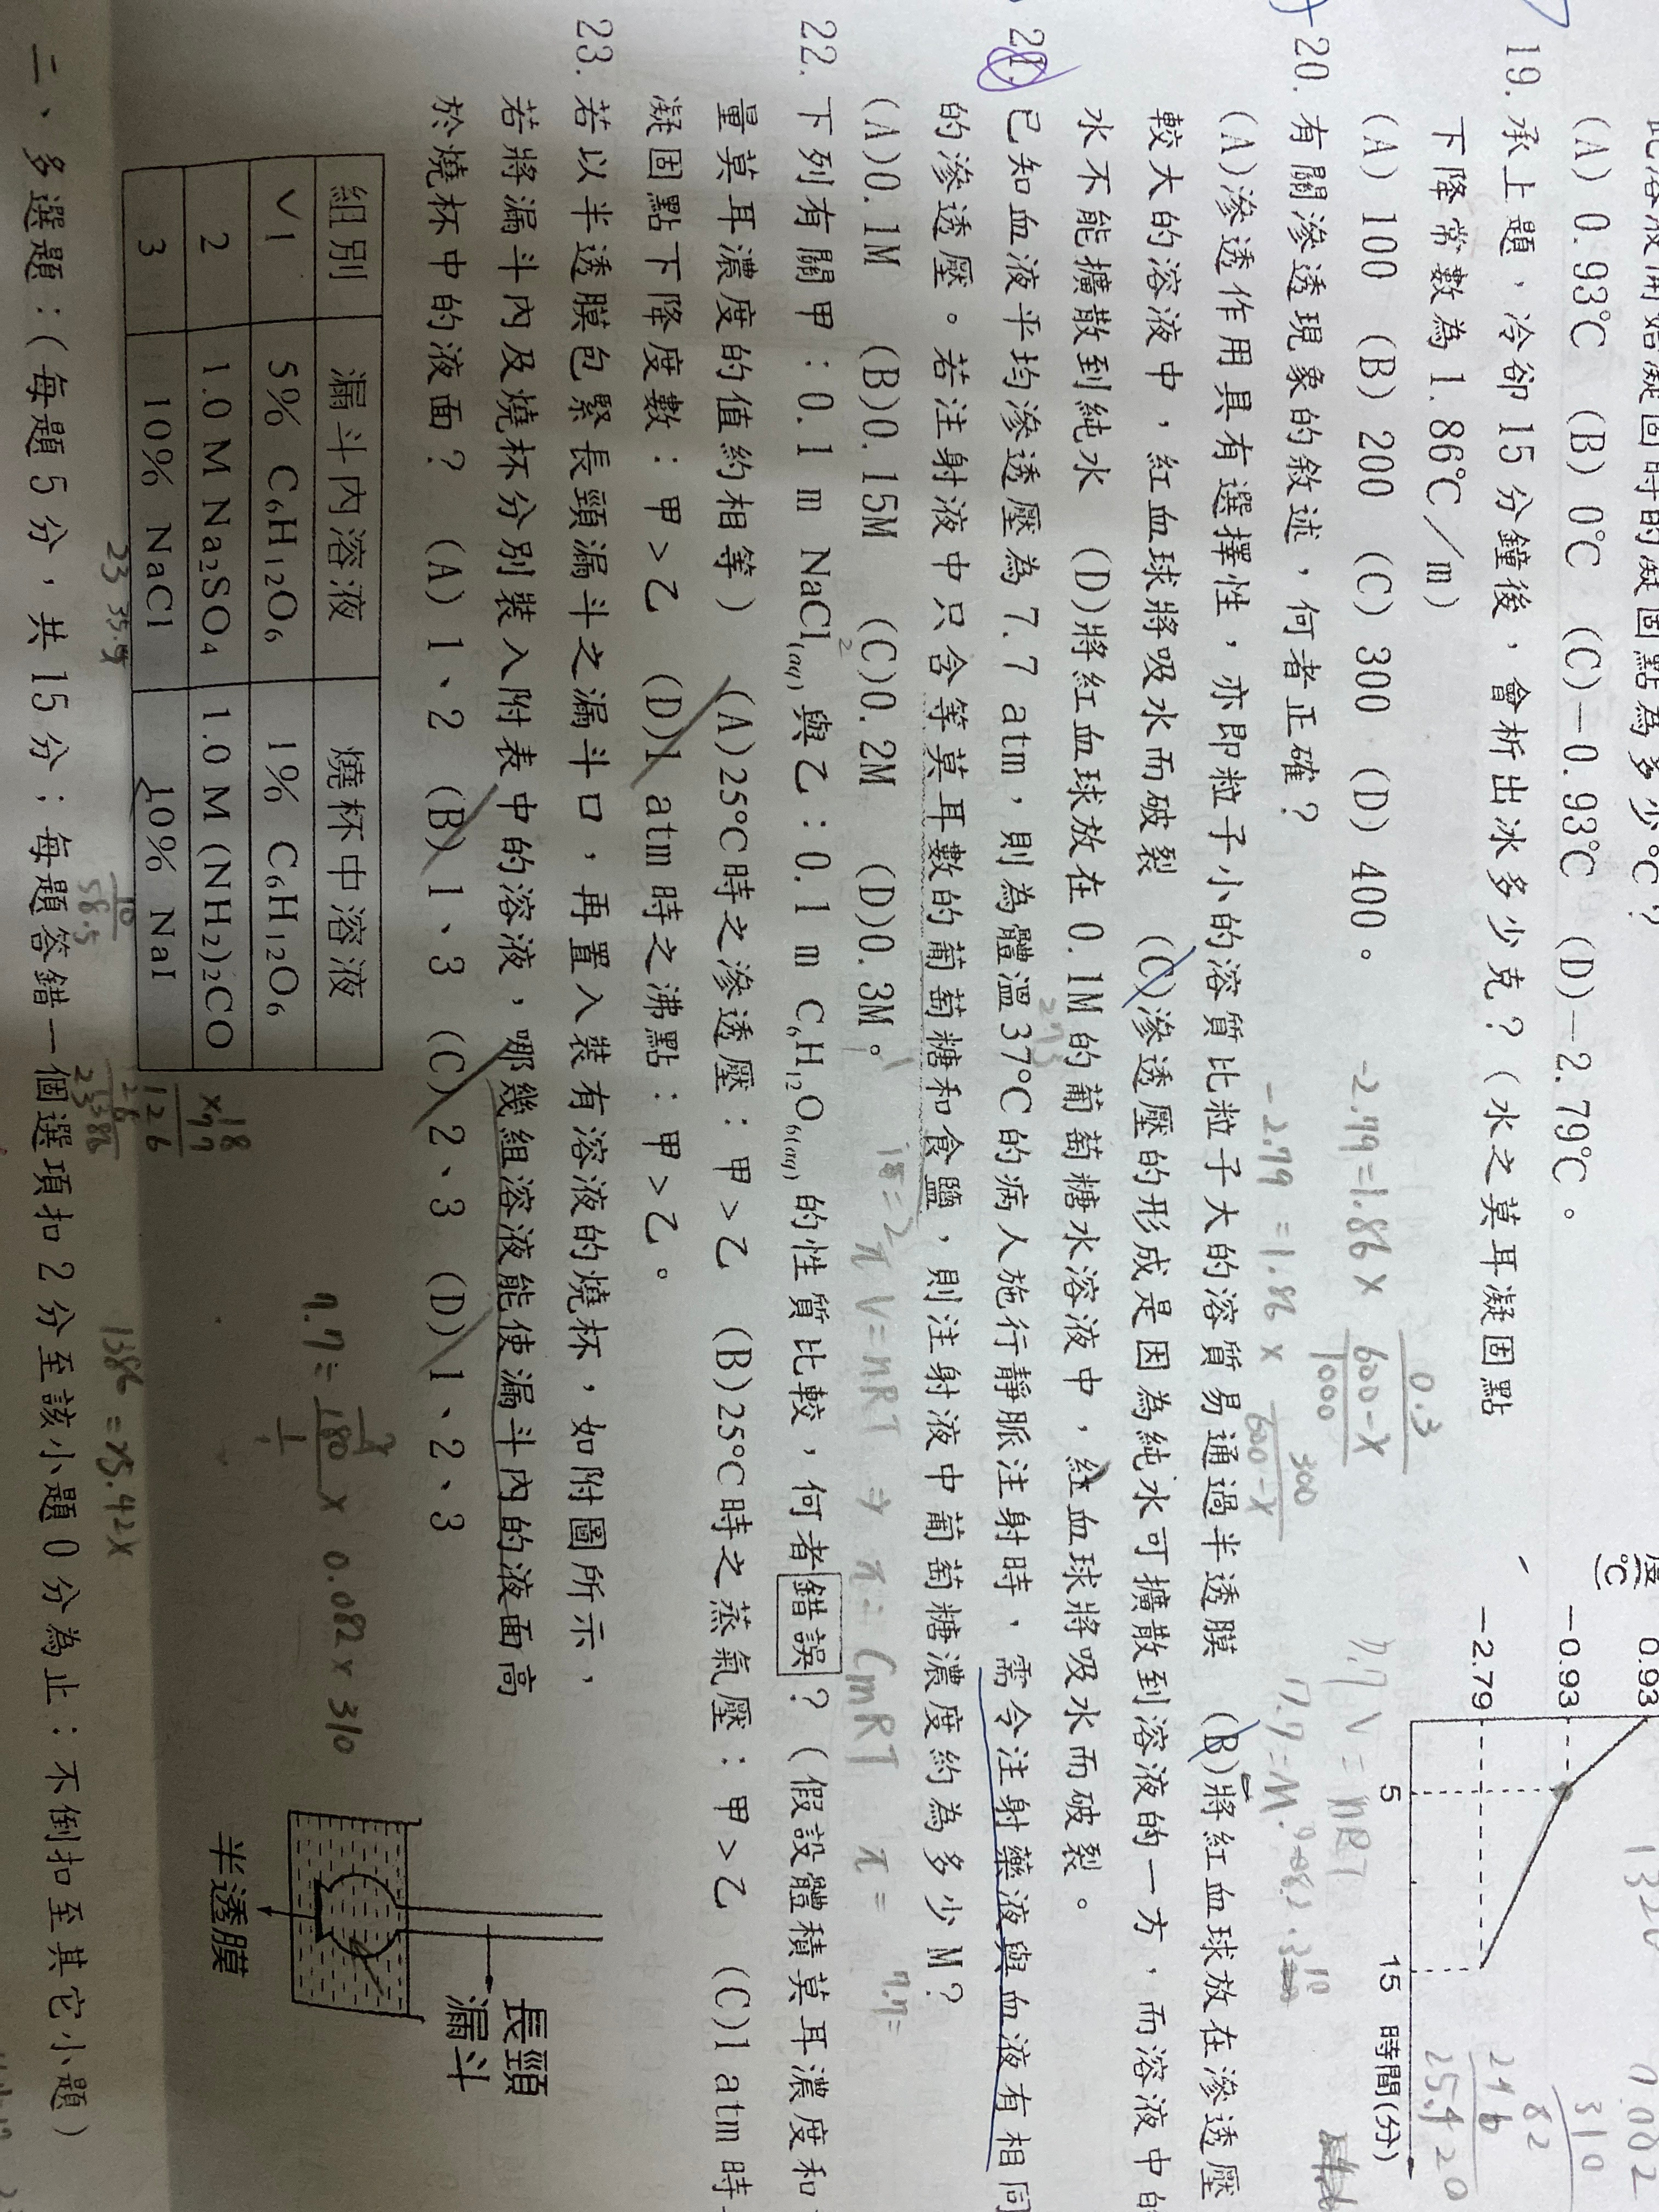 (A) 0.93℃ (B) 0℃ (C)－0.93℃ (D)－2.79℃。
19. 承上題，冷卻 15 分鐘後，會析出冰多少克？（水之莫耳凝固點
下降常數為 1.86℃／m）
(A) 100 (B) 200 (C) 300 (D) 400。
20. 有關滲透現象的敘述，何者正確？
(A)滲透作用具有選擇性，亦即粒子小的溶質比粒子大的溶質易通過半透膜 (B)將紅血球放在滲透壓
較大的溶液中，紅血球將吸水而破裂 (C)滲透壓的形成是因為純水可擴散到溶液的一方，而溶液中的
水不能擴散到純水 (D)將紅血球放在 0.1M 的葡萄糖水溶液中，紅血球將吸水而破裂。
21. 已知血液平均滲透壓為 7.7 atm，則為體溫 37℃的病人施行靜脈注射時，需令注射藥液與血液有相同
的滲透壓。若注射液中只含等莫耳數的葡萄糖和食鹽，則注射液中葡萄糖濃度約為多少 M？
(A)0.1M (B)0.15M (C)0.2M (D)0.3M。
22. 下列有關甲：0.1 m NaCl(aq)與乙：0.1 m C6H12O6(aq)的性質比較，何者錯誤？（假設體積莫耳濃度和
量莫耳濃度的值約相等） (A)25℃時之滲透壓：甲＞乙 (B)25℃時之蒸氣壓：甲＞乙 (C)1 atm 時
凝固點下降度數：甲＞乙 (D)1 atm 時之沸點：甲＞乙。
23. 若以半透膜包緊長頸漏斗之漏斗口，再置入裝有溶液的燒杯，如附圖所示，
若將漏斗內及燒杯分別裝入附表中的溶液，哪幾組溶液能使漏斗內的液面高
於燒杯中的液面？ (A) 1、2 (B) 1、3 (C) 2、3 (D) 1、2、3
組別 漏斗內溶液 燒杯中溶液
1 5% C6H12O6 1% C6H12O6
2 1.0 M Na2SO4 1.0 M (NH2)2CO
3 10% NaCl 10% NaI
長頸
漏斗
半透膜
二、多選題：（每題 5 分，共 15 分；每題答錯一個選項扣 2 分至該小題 0 分為止；不倒扣至其它小題）
℃
0.93
－0.93
－2.79
5 15 時間(分)
-2.79=1.86 x
0.3
600-x
1000
-2.79 = 1.86 x
300
600-x
7.7 V = nRT
7.7=M.0.082.310
310
82
25.420
273
πV=nRT ⇒ π=CmRT π=
7.7=
7.7=
180 x 0.082 x 310
23 35.5
10
58.5
18
x77
126
1386
1386 = 25.42x